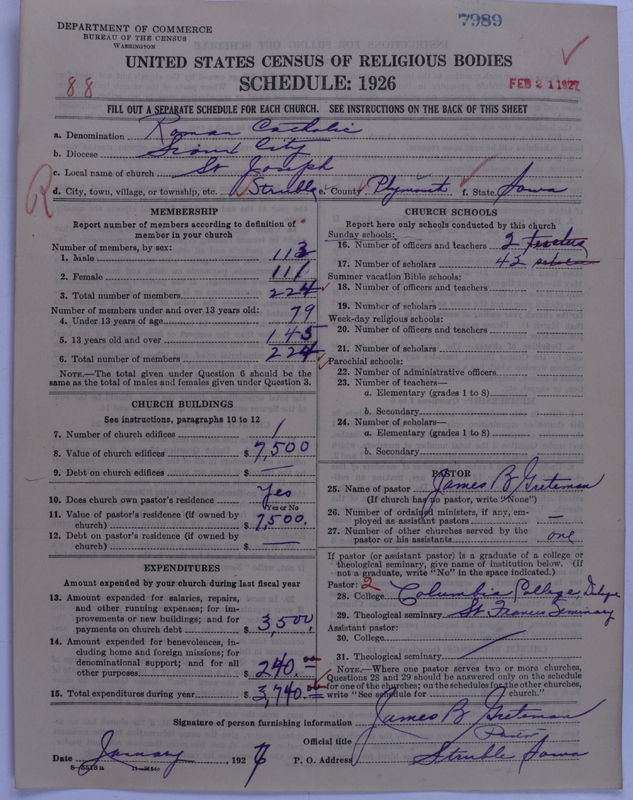 7989
DEPARTMENT OF COMMERCE
BUREAU OF THE CENSUS
WASHINGTON
UNITED STATES CENSUS OF RELIGIOUS BODIES
88 SCHEDULE: 1926 FEB 21 1927
FILL OUT A SEPARATE SCHEDULE FOR EACH CHURCH. SEE INSTRUCTIONS ON THE BACK OF THIS SHEET
a. Denomination Roman Catholic
b. Diocese Sioux City
c. Local name of church St Joseph
d. City, town, village, or township, etc. Struble e. County Plymouth f. State Iowa
R
MEMBERSHIP
Report number of members according to definition of member in your church
Number of members, by sex:
1. Male 113
2. Female 111
3. Total number of members 224
Number of members under and over 13 years old:
4. Under 13 years of age 79
5. 13 years old and over 145
6. Total number of members 224
NOTE.—The total given under Question 6 should be
the same as the total of males and females given under Question 3.
CHURCH BUILDINGS
See instructions, paragraphs 10 to 12
7. Number of church edifices 1
8. Value of church edifices $ 7,500
9. Debt on church edifices $ —
10. Does church own pastor's residence Yes
Yes or No
11. Value of pastor's residence (if owned by
church) $ 7,500.
12. Debt on pastor's residence (if owned by
church) $ —
EXPENDITURES
Amount expended by your church during last fiscal year
13. Amount expended for salaries, repairs,
and other running expenses; for im-
provements or new buildings; and for
payments on church debt $ 3,500.
14. Amount expended for benevolences, in-
cluding home and foreign missions; for
denominational support; and for all
other purposes $ 240.—
15. Total expenditures during year $ 3,740.00
CHURCH SCHOOLS
Report here only schools conducted by this church
Sunday schools:
16. Number of officers and teachers 2
17. Number of scholars 42
Summer vacation Bible schools:
18. Number of officers and teachers
19. Number of scholars
Week-day religious schools:
20. Number of officers and teachers
21. Number of scholars
Parochial schools:
22. Number of administrative officers
23. Number of teachers—
a. Elementary (grades 1 to 8)
b. Secondary
24. Number of scholars—
a. Elementary (grades 1 to 8)
b. Secondary
PASTOR
25. Name of pastor James B Greteman
(If church has no pastor, write "None")
26. Number of ordained ministers, if any, em-
ployed as assistant pastors —
27. Number of other churches served by the
pastor or his assistants one
If pastor (or assistant pastor) is a graduate of a college or
theological seminary, give name of institution below. (If
not a graduate, write "No" in the space indicated.)
Pastor: 2
28. College Columbia College,
29. Theological seminary St Francis Seminary
Assistant pastor:
30. College
31. Theological seminary
NOTE.—Where one pastor serves two or more churches,
Questions 28 and 29 should be answered only on the schedule
for one of the churches; on the schedules for the other churches,
write "See schedule for church."
Signature of person furnishing information James B Greteman
Official title Pastor
Date January, 1927 P. O. Address Struble Iowa